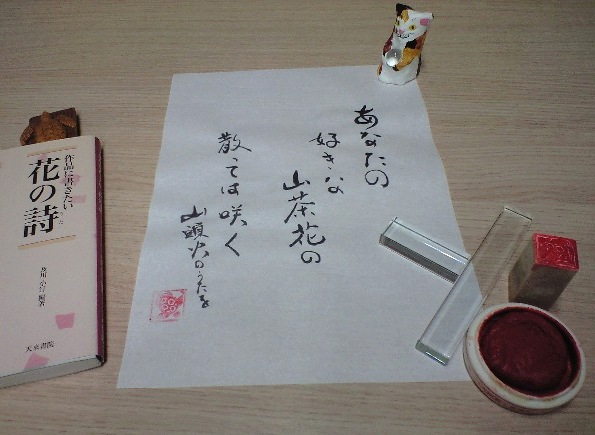 あなたの
好きな
山茶花の
散っては咲く
山頭火のうたを
作品に書きたい
花の詩
天来書院